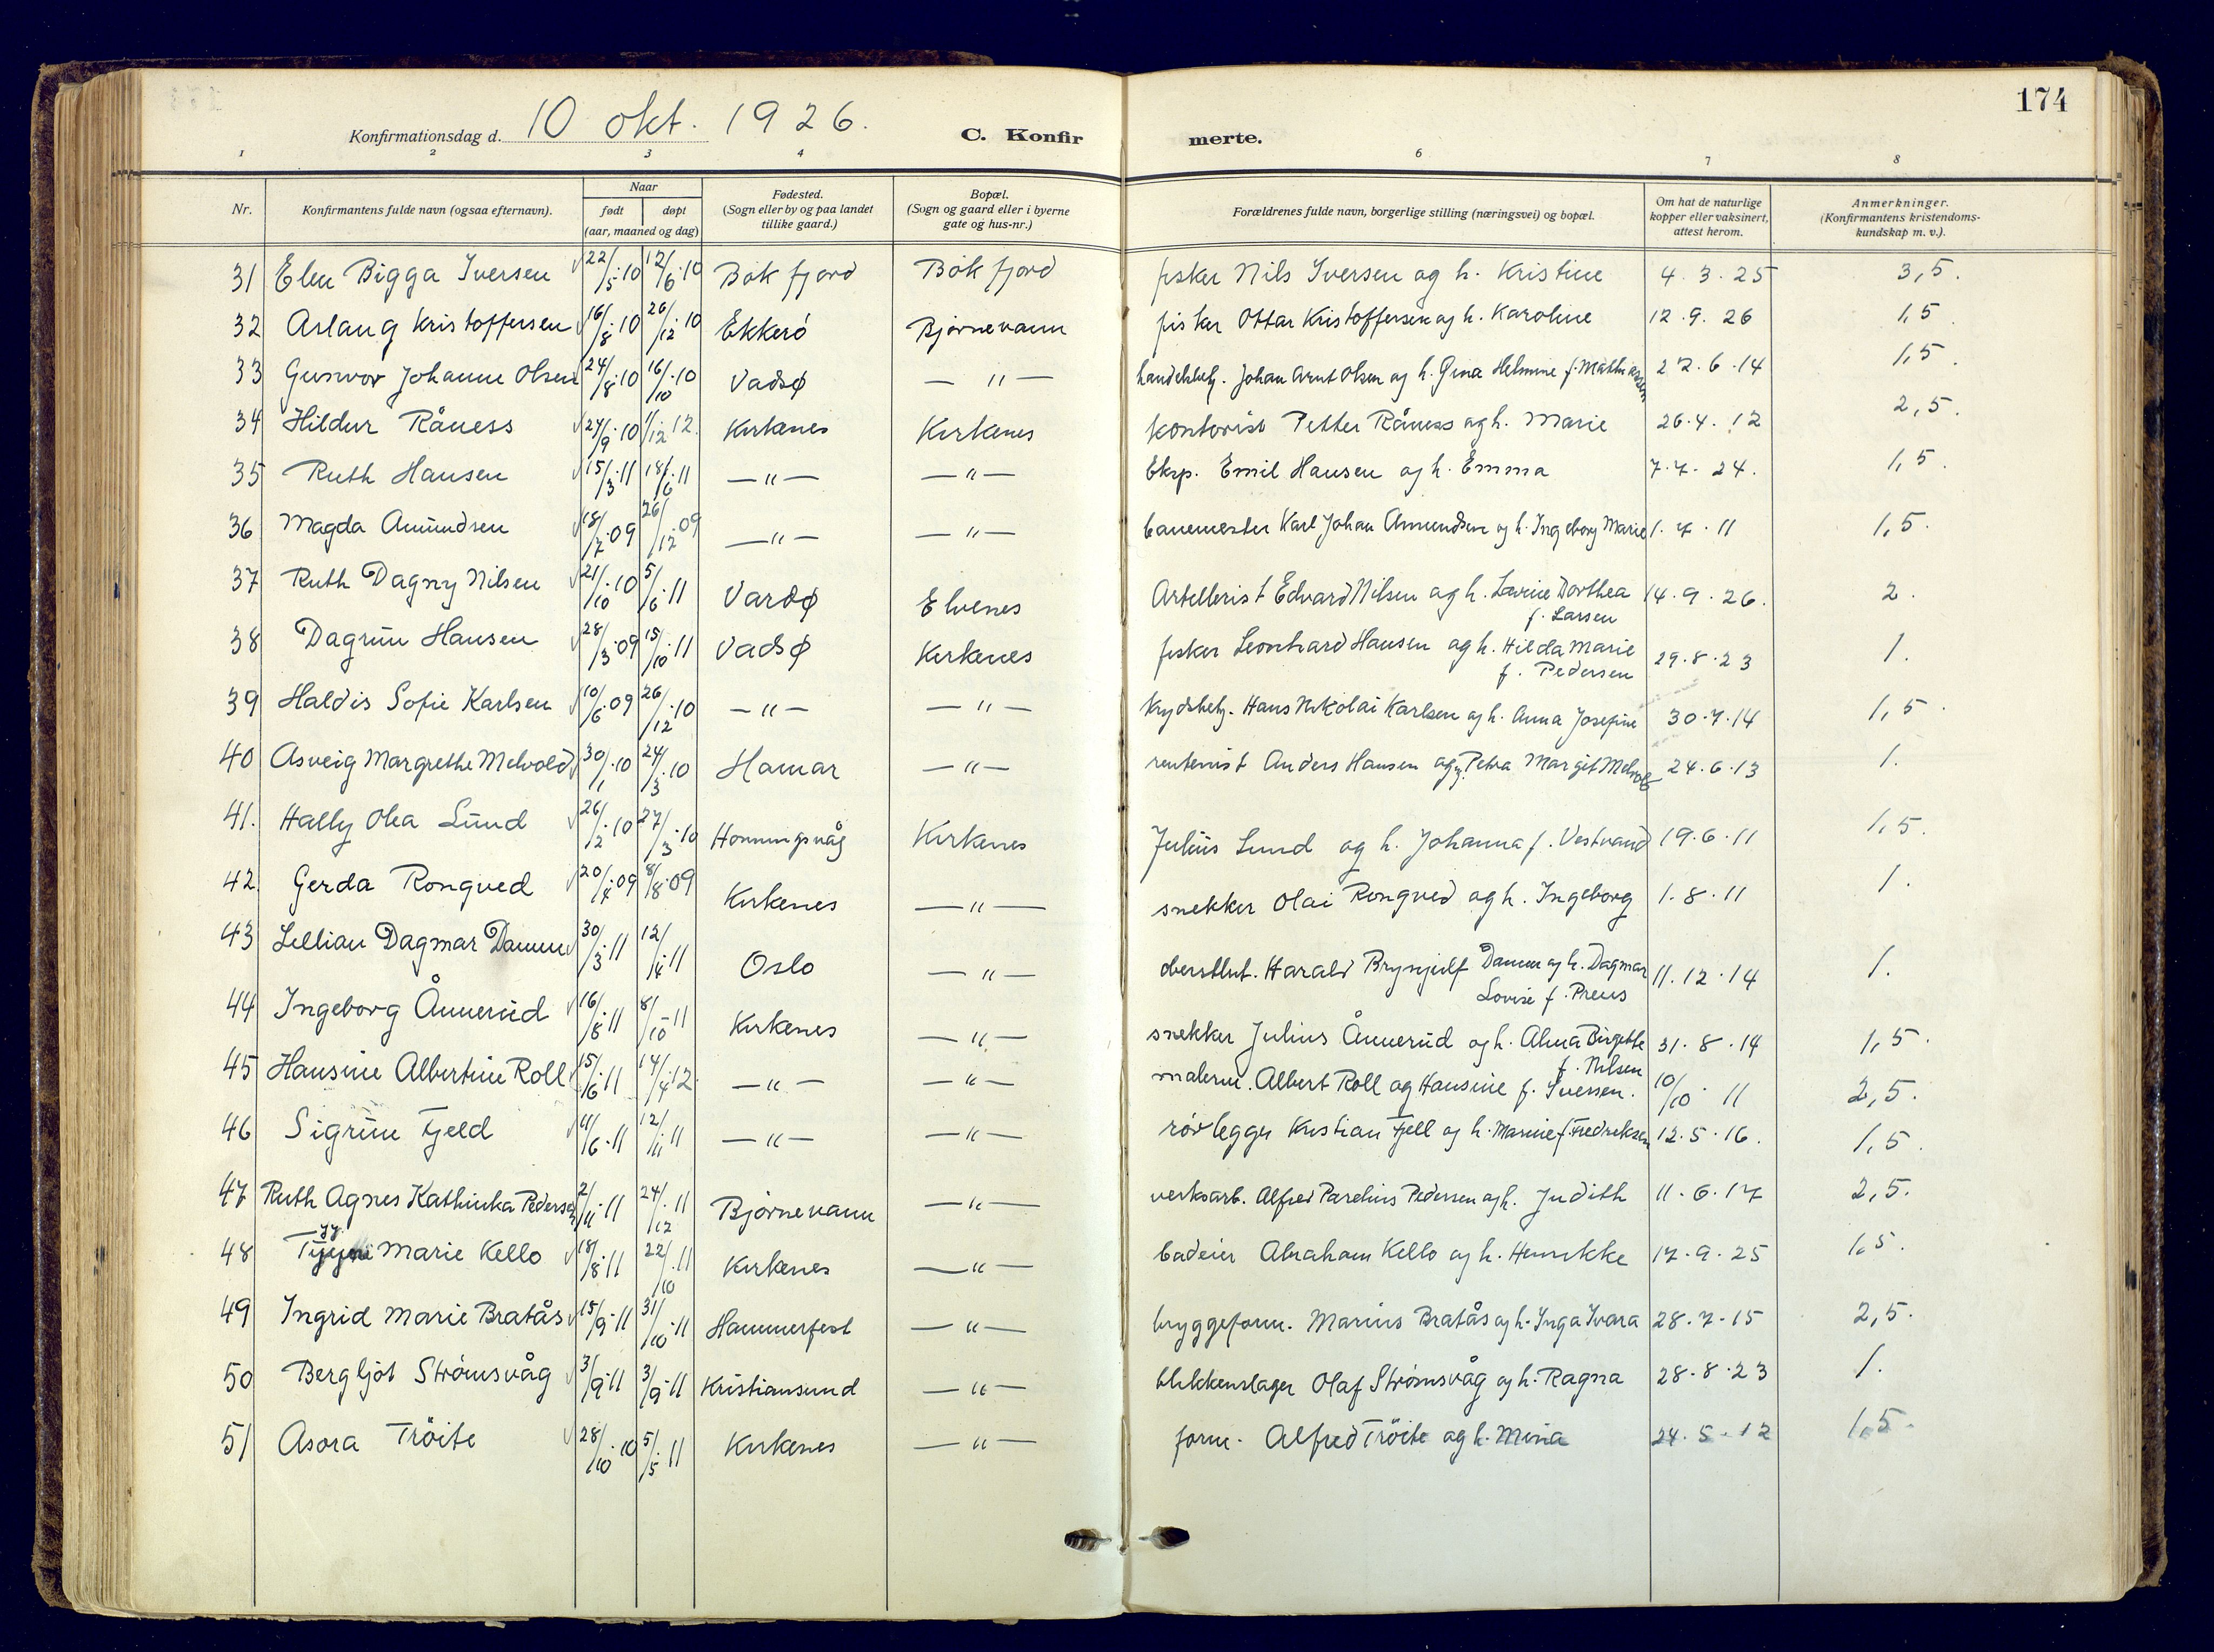 174
Konfirmationsdag d. 10 okt. 1926. C. Konfir merte.
1 2 3 4 6 7 8
Nr. Konfirmantens fulde navn (ogsaa efternavn). Naar født døpt (aar, maaned og dag) Fødested. (Sogn eller by og paa landet tillike gaard.) Bopæl. (Sogn og gaard eller i byerne gate og hus-nr.) Forældrenes fulde navn, borgerlige stilling (næringsvei) og bopæl. Om hat de naturlige kopper eller vaksinert, attest herom. Anmerkninger. (Konfirmantens kristendoms- kundskap m. v.).
31 Elen Bigga Iversen 22/5.10 12/6.10 Bøkfjord Bøkfjord fisker Nils Iversen og h. Kristine 4.3.25 3,5.
32 Aslaug Kristoffersen 16/8.10 26/12.10 Ekkerø Bjørnevann fisker Ottar Kristoffersen og h. Karoline 12.9.26 1,5
33 Gunvor Johanne Olsen 24/8.10 16/10.10 Vadsø — " — handelsbetj. Johan Arnt Olsen og h. Gina Helmine f. Mathiassen 22.6.14 1,5.
34 Hildur Råness 24/9.10 1/12 12. Kirkenes Kirkenes kontorist Petter Råness og h. Marie 26.4.12 2,5.
35 Ruth Hansen 15/3.11 18/6.11 — " — — " — Eksp. Emil Hansen og h. Emma 7.7.24. 1,5.
36 Magda Amundsen 18/7.09 26/12.09 — " — — " — banemester Karl Johan Amundsen og h. Ingeborg Marie 1.7.11 1,5.
37 Ruth Dagny Nilsen 21/10.10 5/6.11 Vardø Elvenes Artellerist Edvard Nilsen og h. Lavine Dorthea f. Larsen 14.9.26. 2.
38 Dagrun Hansen 28/3.09 15/10.11 Vadsø Kirkenes fisker Leonhard Hansen og h. Hilda Marie f. Pedersen 29.8.23 1.
39 Haldis Sofie Karlsen 10/6.09 26/12.10 — " — — " — Hans Nikolai Karlsen og h. Anna Josefine 30.7.14 1,5.
40 Asveig Margrethe Melvold 30/1.10 24/3.10 Hamar — " — rentenist Anders Hansen og Petra Margit Melvold 24.6.13 1.
41. Hally Olea Lund 26/2.10 27/3.10 Honningsvåg Kirkenes Julius Lund og h. Johanna f. Vestvand 19.6.11 1,5.
42. Gerda Rongved 20/4.09 8/8.09 Kirkenes — " — snekker Olai Rongved og h. Ingeborg 1.8.11 1.
43 Lillian Dagmar Damm 30/3.11 12/4.11 Oslo — " — oberstlut. Harald Brynjulf Damm og h. Dagmar Lovise f. Preus 11.12.14 1.
44 Ingeborg Ånnerud 16/8.11 8/10.11 Kirkenes — " — snekker Julius Ånnerud og h. Alma Birgitte f. Nilsen 31.8.14 1,5.
45 Hansine Albertine Roll 15/6.11 14/4.12. — " — — " — malerm. Albert Roll og Hansine f. Iversen. 10/10 11 2,5.
46 Sigrun Fjeld 11/6.11 12/11.11 — " — — " — rørlegger Kristian Fjell og h. Marine f. Fredriksen 12.5.16. 1,5.
47 Ruth Agnes Kathinka Pedersen 2/11.11 24/12.11 Bjørnevann — " — verksarb. Alfred Parelius Pedersen og h. Judith 11.6.17 2,5.
48 Marie Kello 18/8.11 22/10.11 Kirkenes — " — badeier Abraham Kello og h. Henrikke 17.9.25 1,5.
49 Ingrid Marie Bratås 15/9.11 31/10.11 Hammerfest — " — bryggeform. Marius Bratås og h. Inga Ivara 28.7.15 2,5.
50 Bergljot Strømsvåg 3/9.11 3/9.11 Kristiansund — " — blikkenslager Olaf Strømsvåg og h. Ragna 28.8.23 1.
51 Asora Tröite 28/10.10 5/5.11 Kirkenes — " — form. Alfred Tröite og h. Mina 24.5.12 1,5.